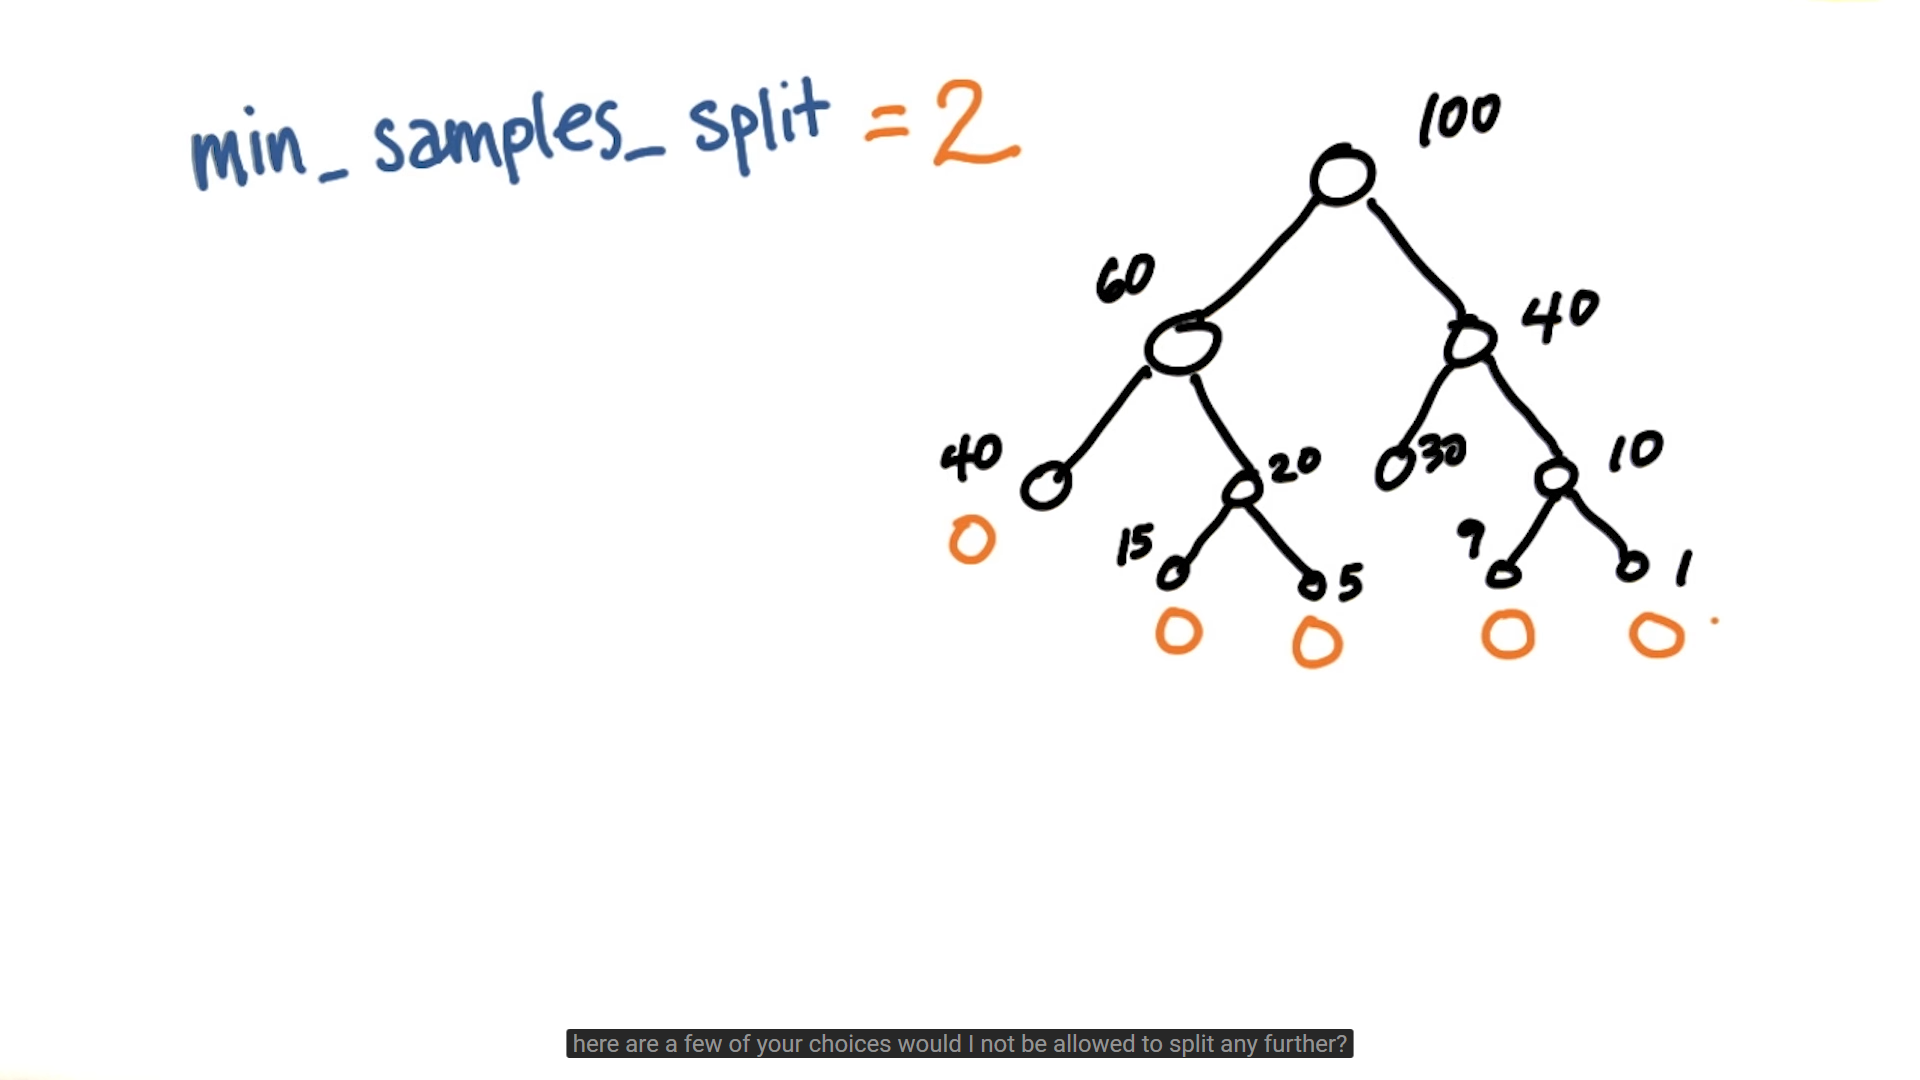 min_samples_split = 2
100
60
40
40
20
30
10
15
5
9
1
here are a few of your choices would I not be allowed to split any further?